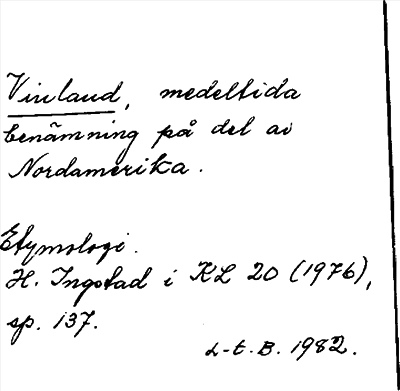 Vinland, medeltida
benämning på del av
Nordamerika.
Etymologi.
H. Ingstad i KL 20 (1976),
sp. 137.
L-E. B. 1982.